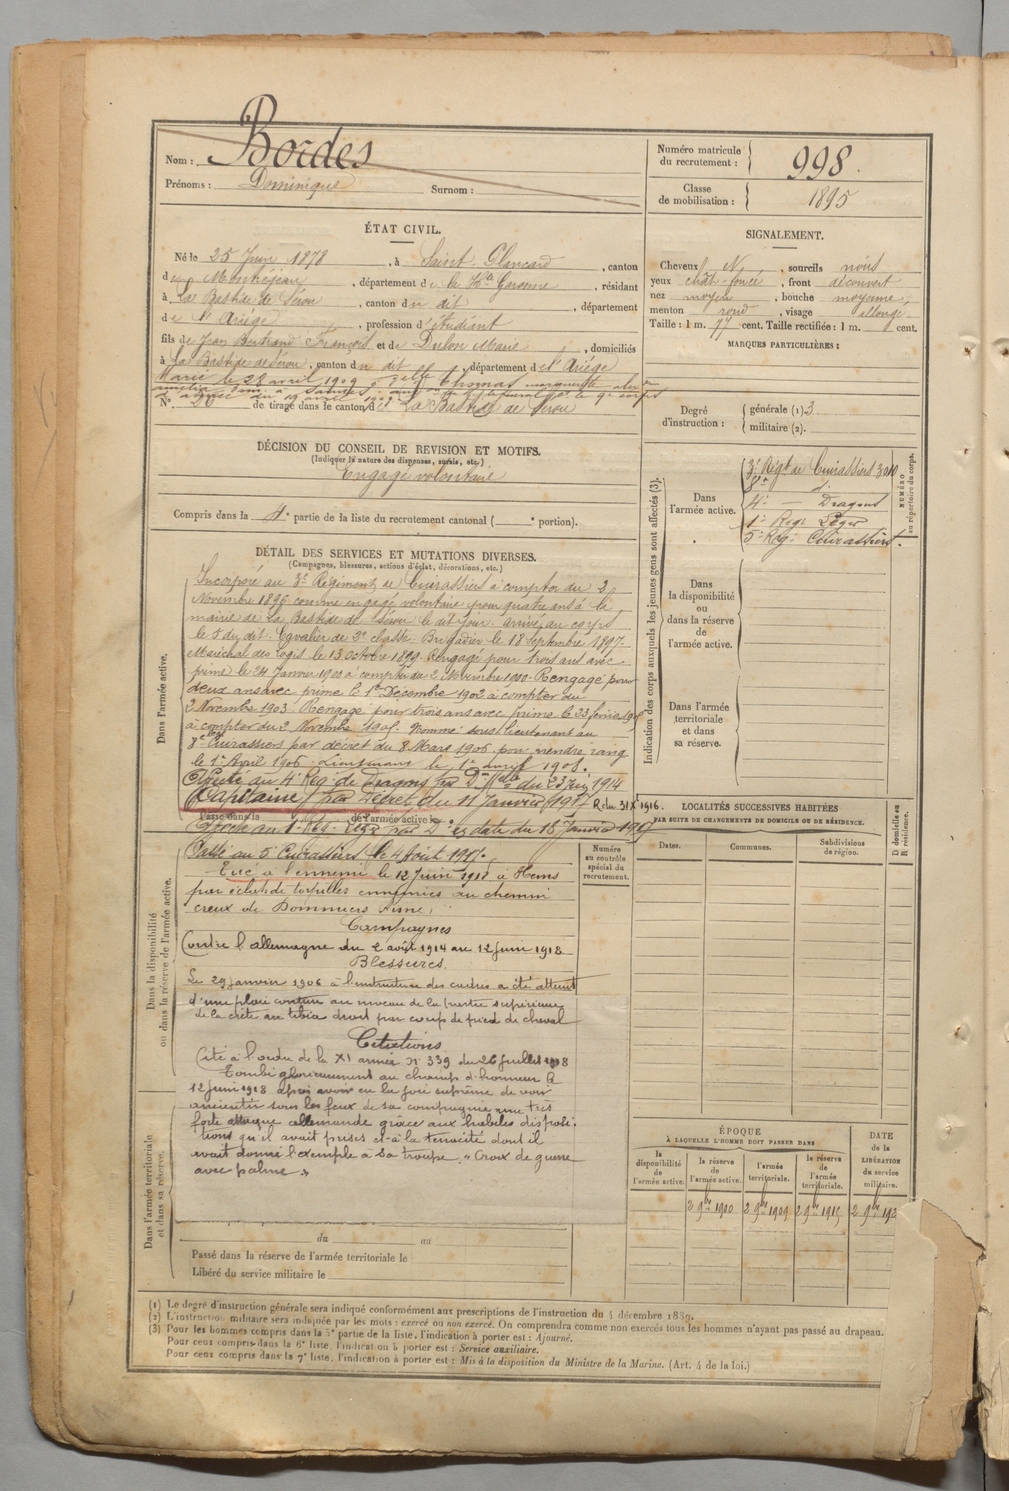 Nom : Bordes
Prénoms : Dominique Surnom :
Numéro matricule du recrutement : 998.
Classe de mobilisation : 1895
ÉTAT CIVIL.
Né le 25 Juin 1878, à Saint Plancard, canton
de Montréjeau, département de la Hte Garonne, résidant
à La Bastide de Sérou, canton du dit, département
de l'Ariège, profession d'étudiant
fils de Jean Bertrand François et de Dulon Marie, domiciliés
à La Bastide de Sérou, canton du dit, département de l'Ariège
Marié le 28 avril 1909 à Thomas marguerite
No 20 de tirage dans le canton de La Bastide de Sérou
SIGNALEMENT.
Cheveux N, sourcils noirs
yeux chât-foncé, front découvert
nez moyen, bouche moyenne,
menton rond, visage allongé
Taille : 1 m. 77 cent. Taille rectifiée : 1 m. cent.
MARQUES PARTICULIÈRES :
Degré d'instruction : générale (1) 3
militaire (2).
DÉCISION DU CONSEIL DE REVISION ET MOTIFS.
(Indiquer la nature des dispenses, sursis, etc.)
Engagé volontaire
Compris dans la 4e partie de la liste du recrutement cantonal ( e portion).
Indication des corps auxquels les jeunes gens sont affectés (3).
NUMÉRO au répertoire du corps.
Dans l'armée active.
3e Régt de Cuirassiers
8e d°
4e — Dragons
1er Regt Léger
5e Reg. Cuirassiers.
Dans la disponibilité ou dans la réserve de l'armée active.
Dans l'armée territoriale et dans sa réserve.
DÉTAIL DES SERVICES ET MUTATIONS DIVERSES.
(Campagnes, blessures, actions d'éclat, décorations, etc.)
Dans l'armée active.
Incorporé au 3e Régiment de Cuirassiers à compter du 2
Novembre 1896 comme engagé volontaire pour quatre ans à la
mairie de La Bastide de Sérou le dit jour. arrivé au corps
le 5 du dit. Cavalier de 2e classe. Brigadier le 18 septembre 1897.
Maréchal des logis le 13 octobre 1899. Rengagé pour trois ans avec
prime le 24 Janvier 1900 à compter du 2 Novembre 1900. Rengagé pour
deux ans avec prime le 1er Décembre 1902 à compter du
2 Novembre 1903. Rengagé pour trois ans avec prime le 23 février 1905
à compter du 2 Novembre 1905. Nommé sous lieutenant au
8e Cuirassiers par décret du 8 Mars 1906 pour prendre rang
le 1er Avril 1906. Lieutenant le 1er avril 1908.
Affecté au 4e Reg. de Dragons par Don Mlle du 23 Juin 1914
Capitaine par décret du 11 Janvier 1917 R du 31 X 1916.
Passé dans la de l'armée active le
Affecté au 1er Rég. Léger par Don en date du 18 Janvier 1917
Dans la disponibilité ou dans la réserve de l'armée active.
Passé au 5e Cuirassiers le 4 Août 1917.
Tué à l'ennemi le 12 Juin 1918
par éclats de torpilles ennemies au chemin
creux de Dommiers Aisne.
Campagnes
Contre l'allemagne du 2 août 1914 au 12 juin 1918
Blessures.
Le 29 janvier 1906 à l'instruction des cadres a été atteint
d'une plaie contuse au niveau de la partie supérieure
de la crête au tibia droit par coup de pied de cheval
Citations
Cité à l'ordre de la X armée No 339 du 26 Juillet 1918
Tombé glorieusement au champ d'honneur le
12 juin 1918 après avoir eu la joie suprême de voir
anéantir sous les feux de sa compagnie une très
forte attaque allemande grâce aux habiles disposi-
tions qu'il avait prises et à la tenacité dont il
avait donné l'exemple à sa troupe. « Croix de guerre
avec palme »
Dans l'armée territoriale et dans sa réserve.
du au
Passé dans la réserve de l'armée territoriale le
Libéré du service militaire le
Numéro au contrôle spécial du recrutement.
LOCALITÉS SUCCESSIVES HABITÉES
PAR SUITE DE CHANGEMENTS DE DOMICILE OU DE RÉSIDENCE.
Dates. Communes. Subdivisions de région. D domicile ou R résidence.
ÉPOQUE
À LAQUELLE L'HOMME DOIT PASSER DANS
DATE de la LIBÉRATION du service militaire.
la disponibilité de l'armée active.
la réserve de l'armée active.
l'armée territoriale.
la réserve de l'armée territoriale.
2 9bre 1900 2 9bre 1909 2 9bre 1915 2 9bre 192
(1) Le degré d'instruction générale sera indiqué conformément aux prescriptions de l'instruction du 4 décembre 1889.
(2) L'instruction militaire sera indiquée par les mots : exercé ou non exercé. On comprendra comme non exercés tous les hommes n'ayant pas passé au drapeau.
(3) Pour les hommes compris dans la 5e partie de la liste, l'indication à porter est : Ajourné.
Pour ceux compris dans la 6e liste, l'indication à porter est : Service auxiliaire.
Pour ceux compris dans la 7e liste, l'indication à porter est : Mis à la disposition du Ministre de la Marine. (Art. 4 de la loi.)